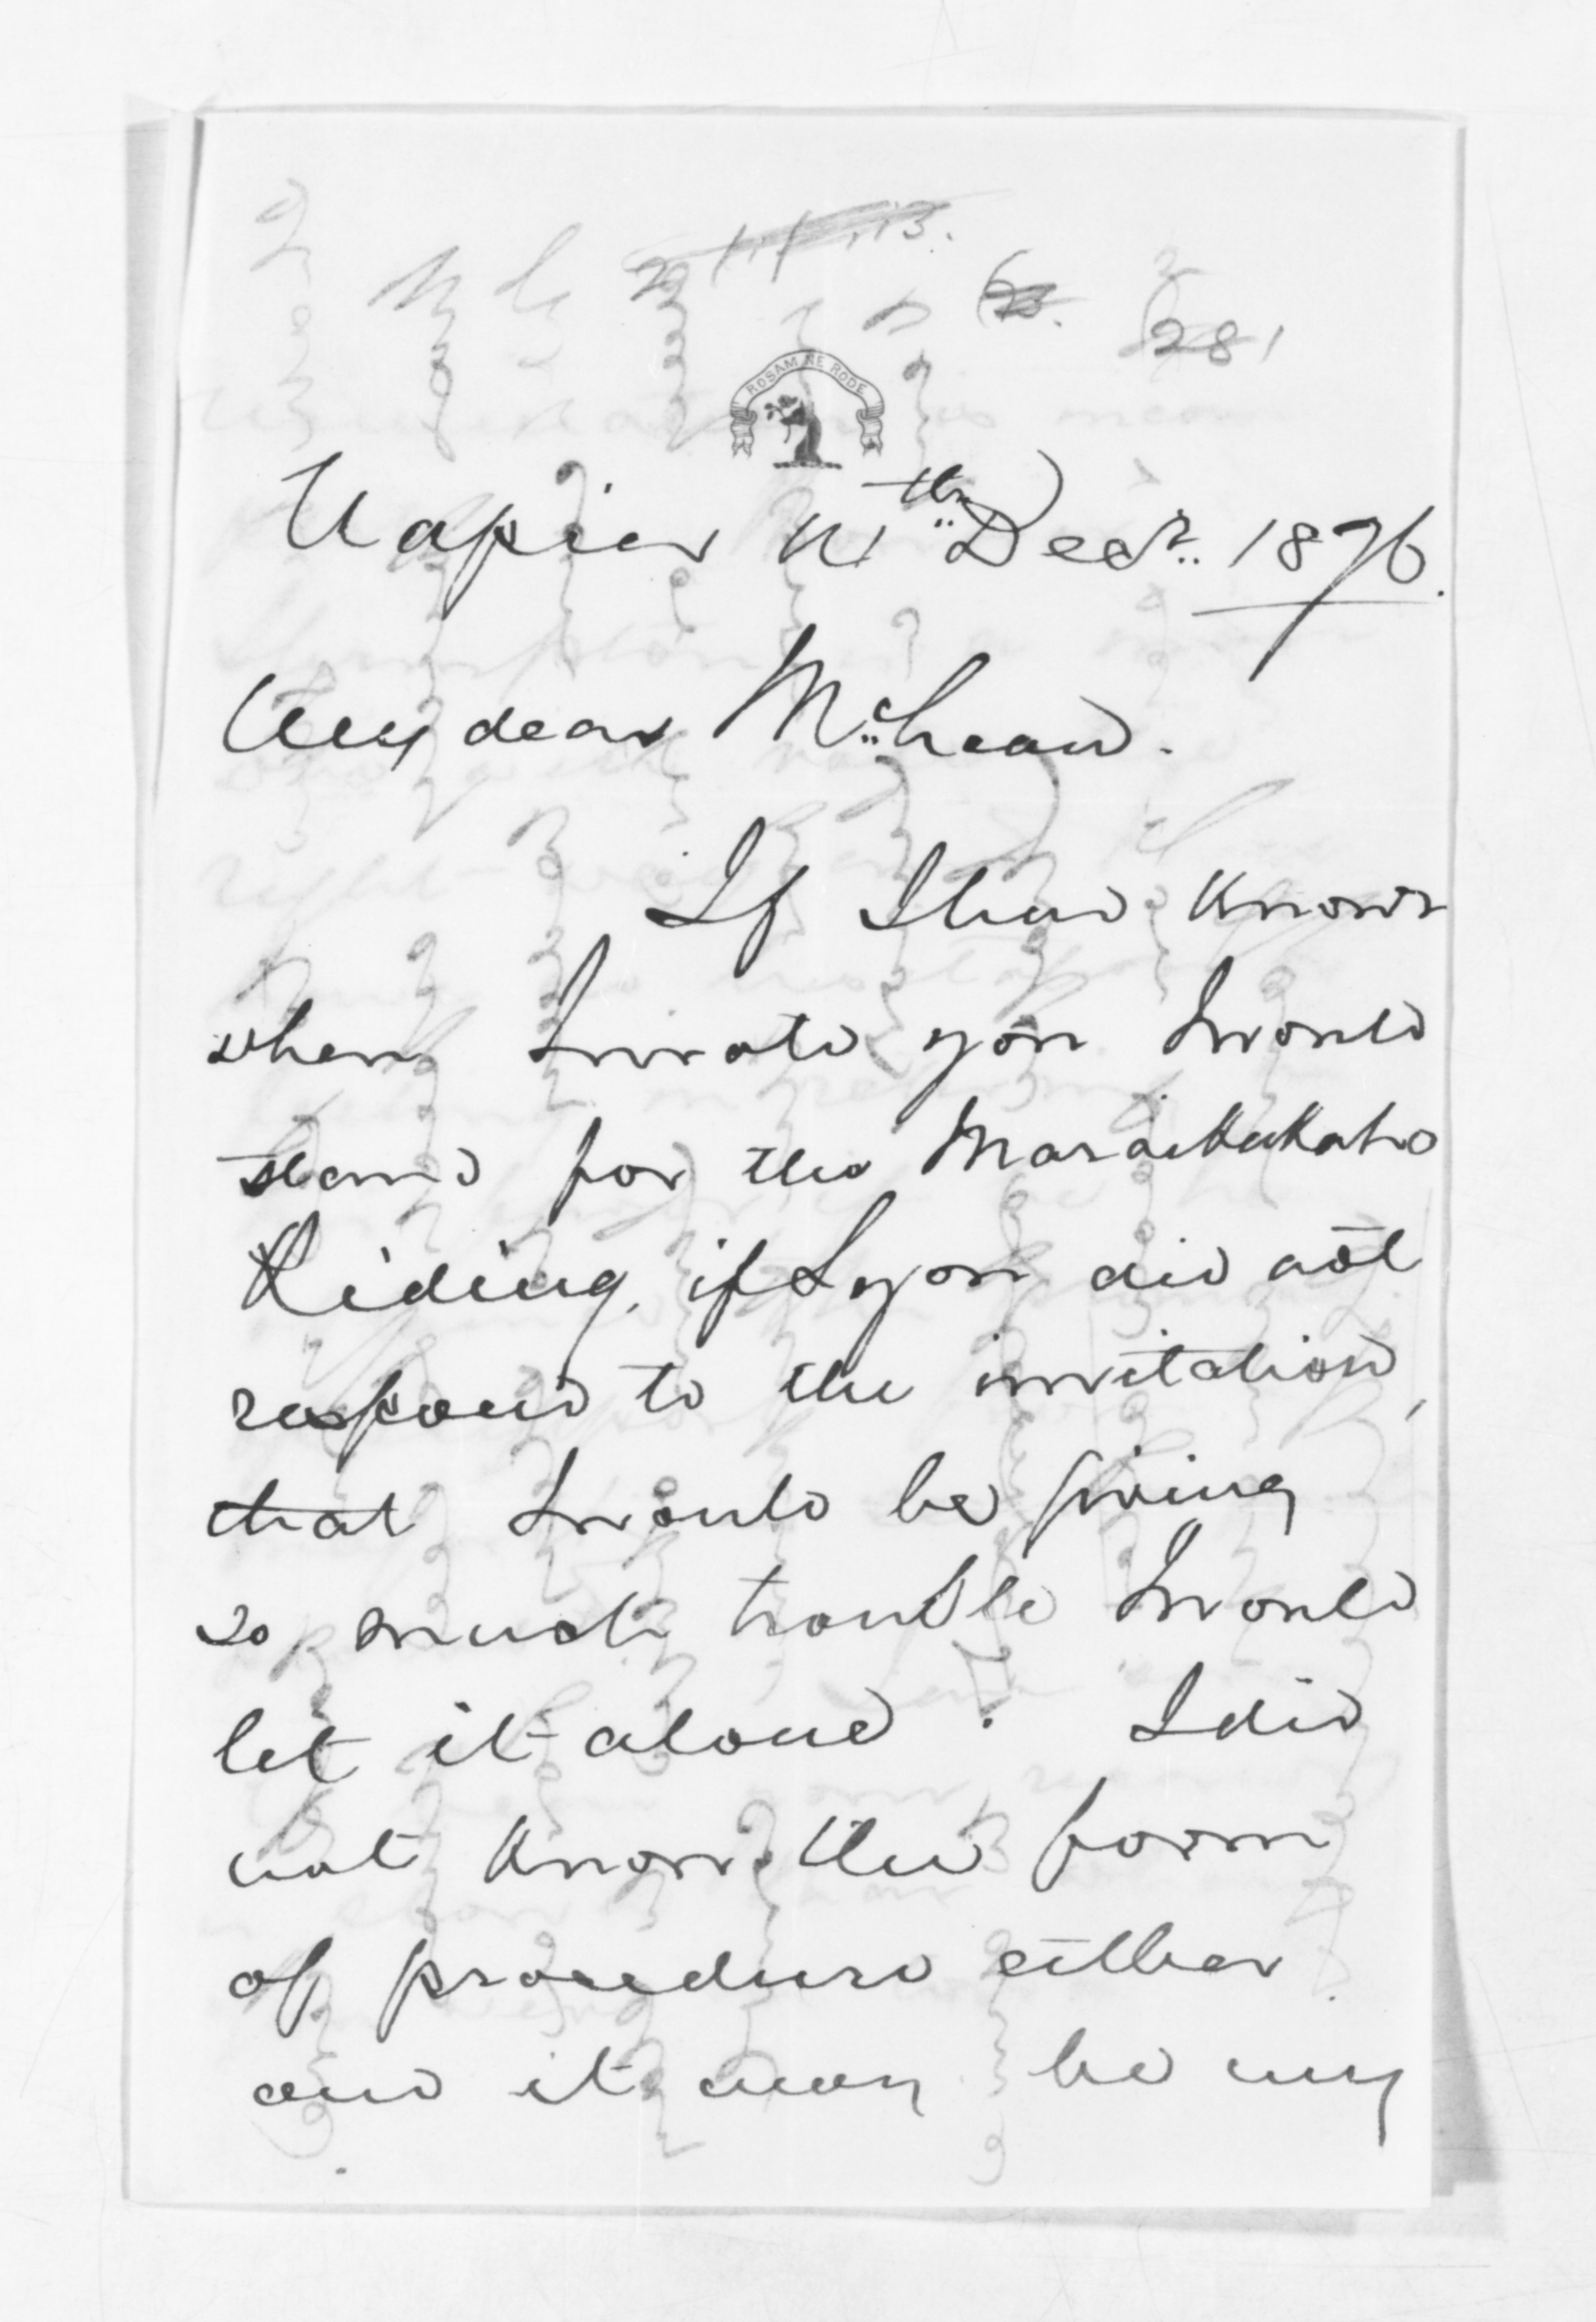 281
ROSAM NE RODE
Napier 11th Decr. 1876.
My dear McLean.
If I had known
when I wrote you I would
stand for the Maraekakaho
Riding, if Lyon did not
respond to the invitation,
that I would be giving
so much trouble I would
let it alone. I did
not know the form
of procedure either
and it may be my